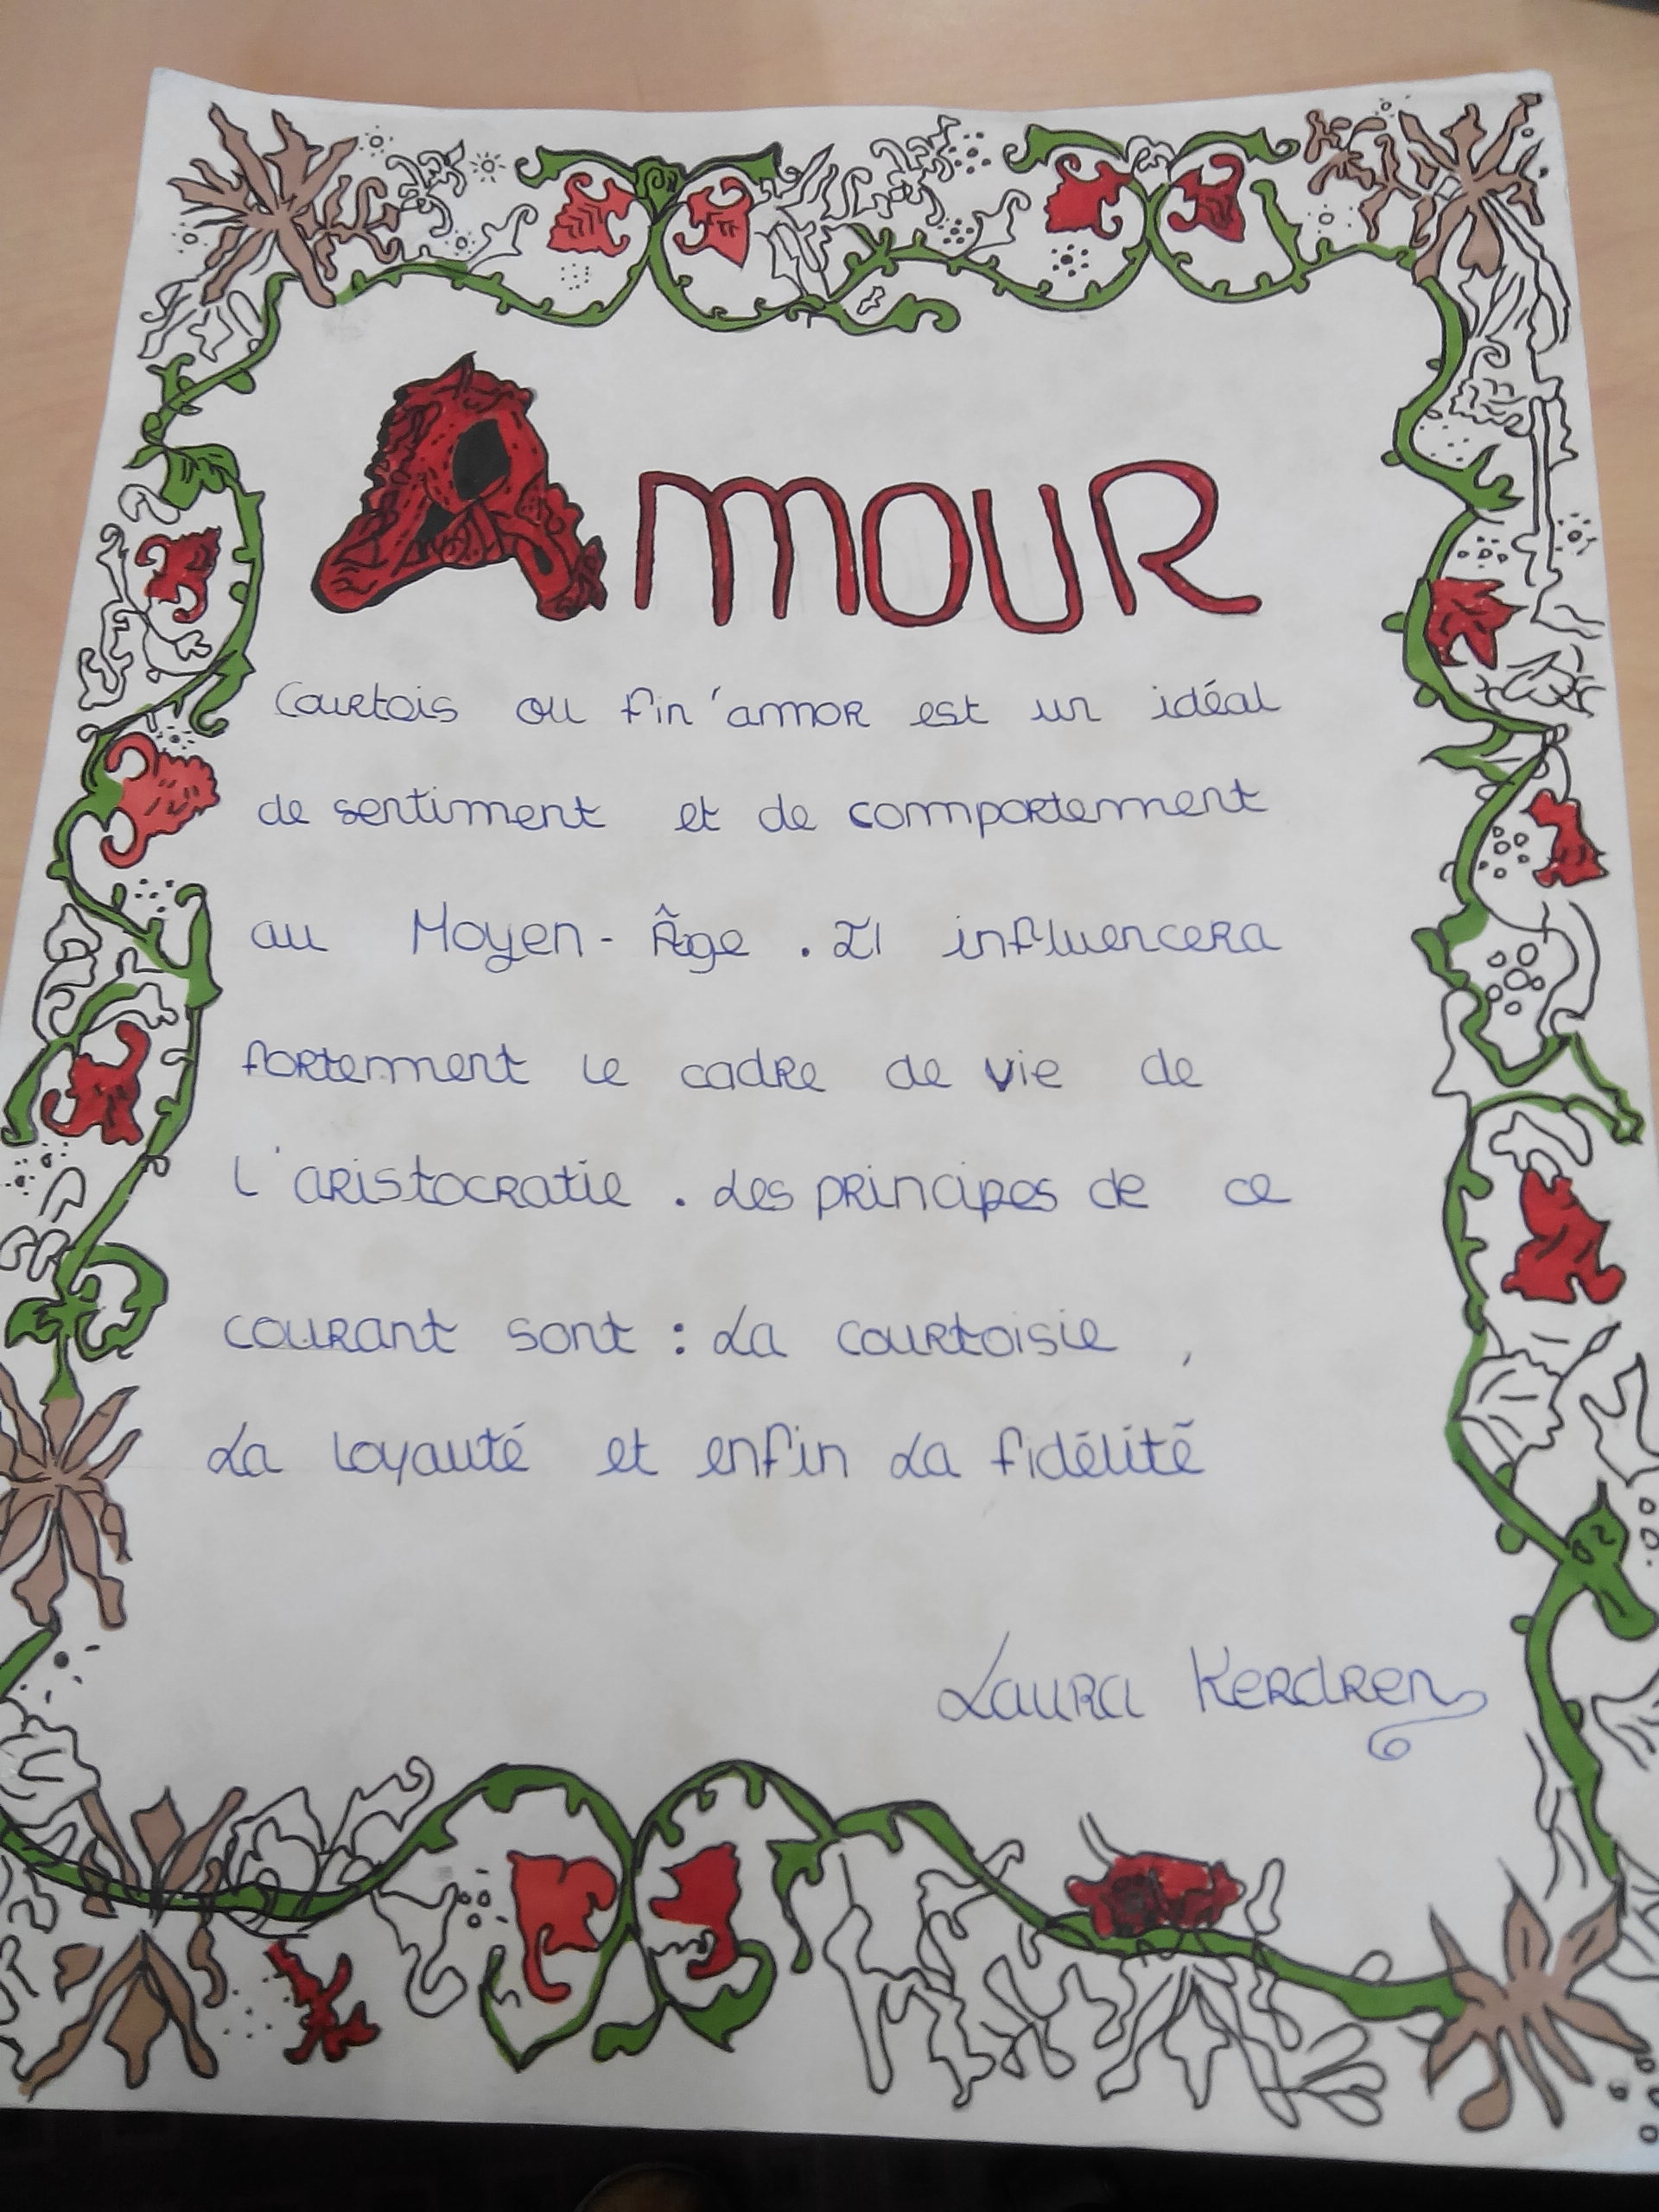 AmouR
Courtois ou fin'amor est un idéal
de sentiment et de comportement
au Moyen-Âge. Il influencera
fortement le cadre de vie de
l'aristocratie. Les principes de ce
courant sont : La courtoisie,
La loyauté et enfin La fidélité
Laura Kerdren